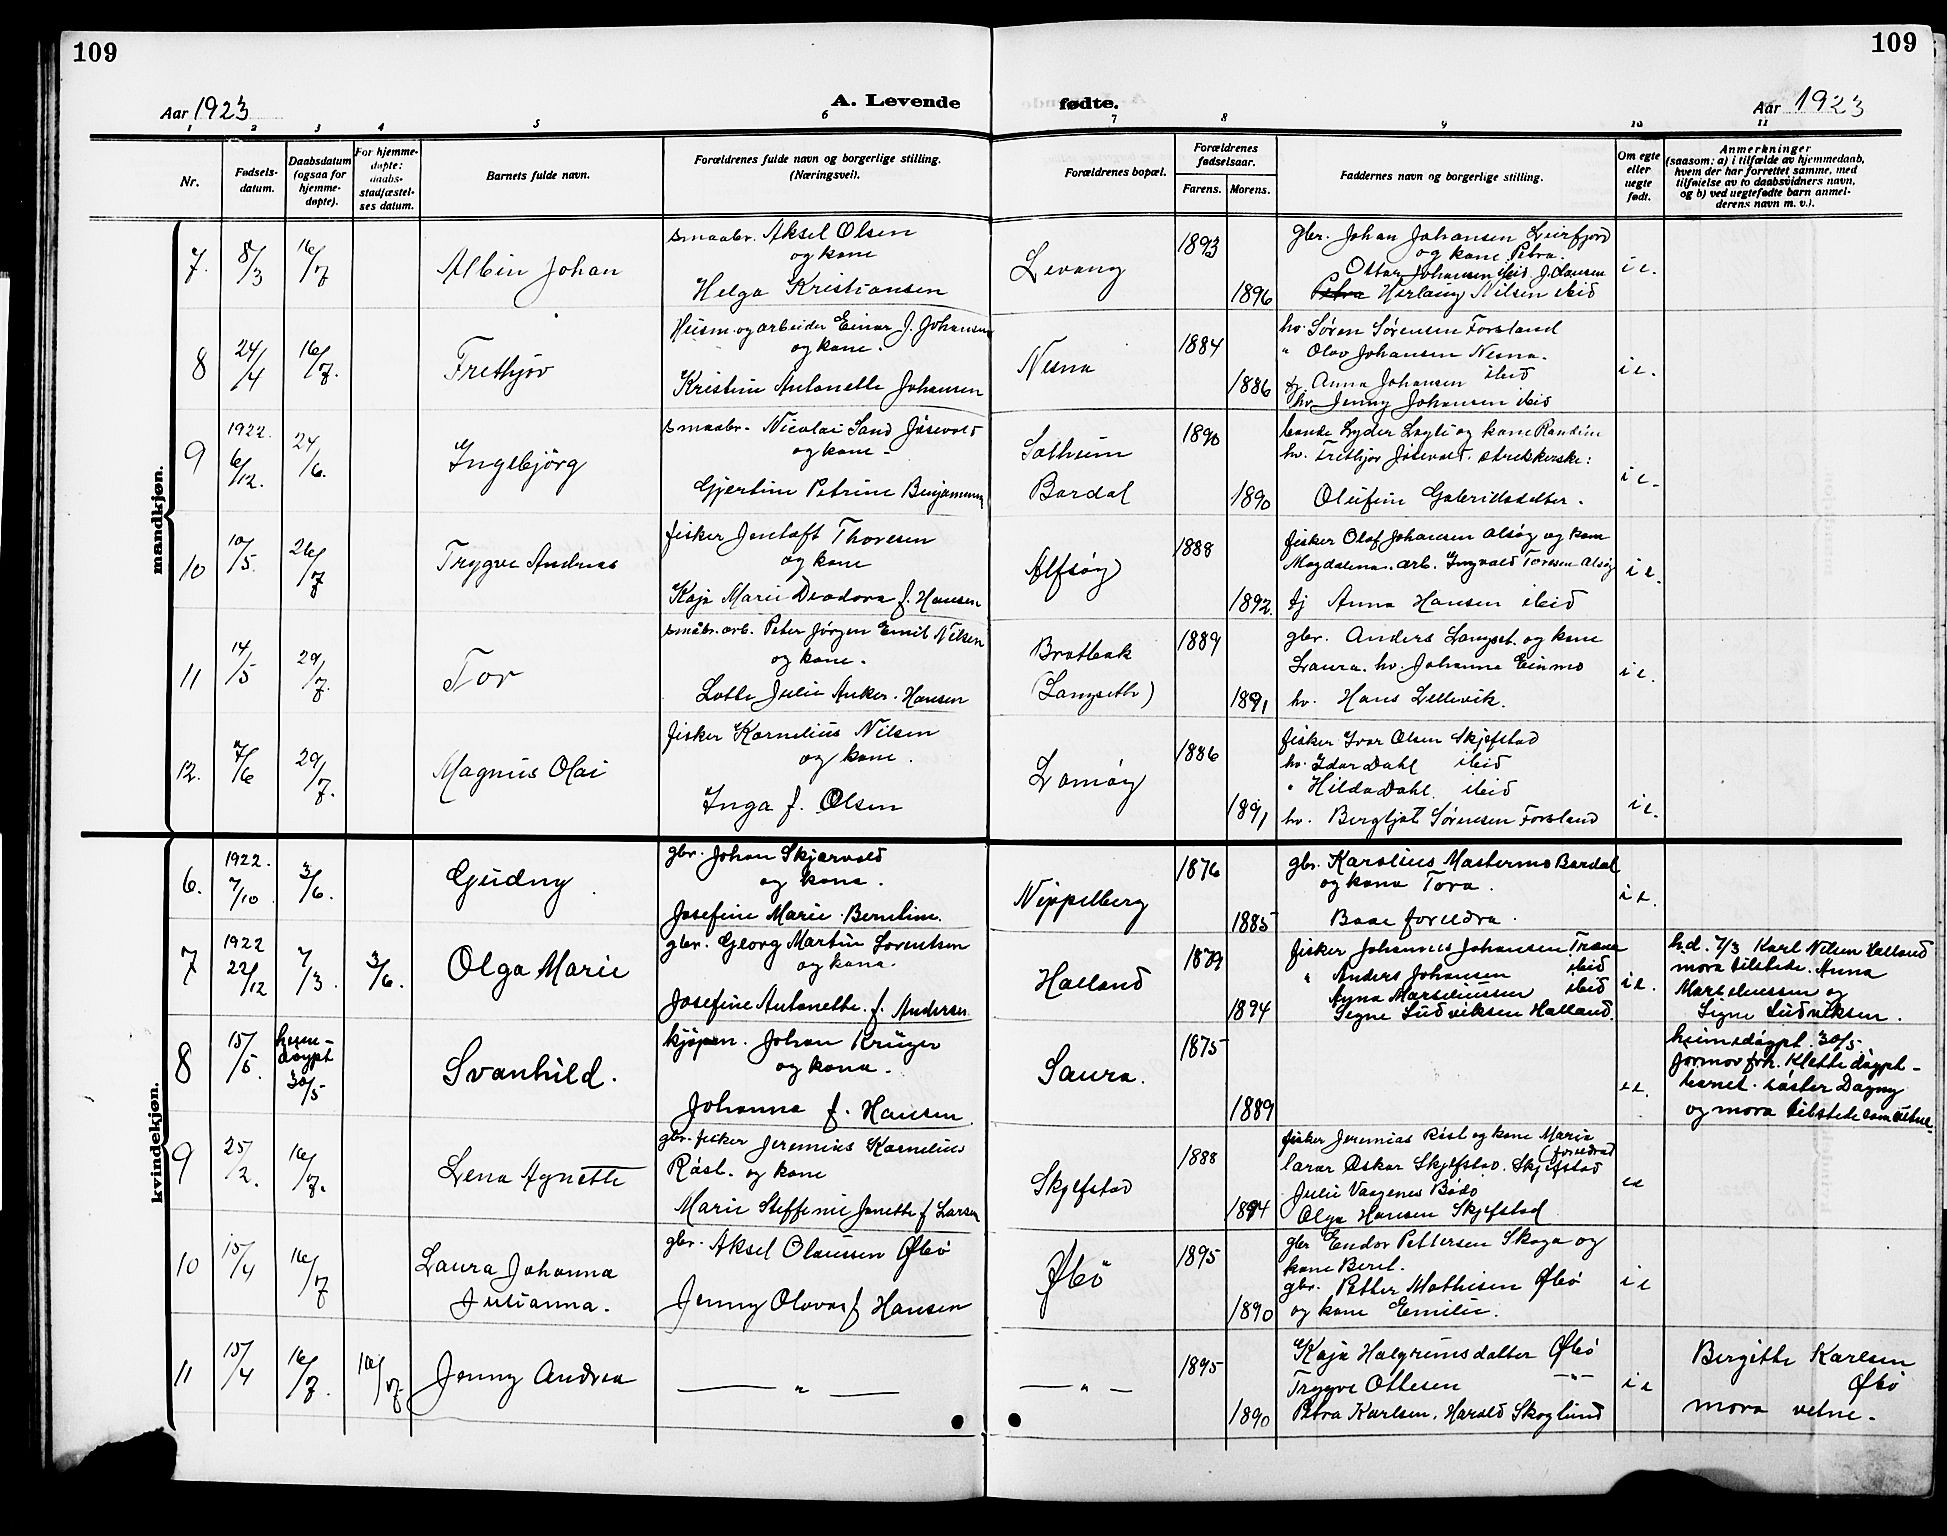 109
109
Aar 1923
A. Levende
fødte.
Aar 1923
1 2 3 4 5 6 7 8 9 10 11
Nr.
Fødsels-
datum.
Daabsdatum
(ogsaa for
hjemme-
døpte).
For hjemme-
døpte:
daabs-
stadfæstel-
ses datum.
Barnets fulde navn.
Forældrenes fulde navn og borgerlige stilling.
(Næringsvei).
Forældrenes bopæl.
Forældrenes
fødselsaar.
Farens. Morens.
Faddernes navn og borgerlige stilling.
Om egte
eller
uegte
født.
Anmerkninger
(saasom: a) i tilfælde av hjemmedaab,
hvem der har forrettet samme, med
tilføielse av to daabsvidners navn,
og b) ved uegtefødte barn anmel-
derens navn m. v.).
mandkjøn.
7. 8/3 16/7
Albin Johan
smaabr. Aksel Olsen
og kone
Helga Kristiansen
Levang
1893
1896
gbr. Johan Johansen Leirfjord
og kone Petra.
Ottar Johansen ibid. J. Clausen
Petra Herlaug Nilsen ibid
i e.
8 24/4 16/7.
Frethjov
Husm. og arbeider Einar J. Johansen
og kone.
Kristine Antonette Johansen
Nesna
1884
1886
hv. Søren Sørensen Forsland
" Olav Johansen Nesna.
tj. Anna Johansen ibid
hv. Jenny Johansen ibid
i e.
9 1922. 6/12. 24/6.
Ingebjörg
smaabr. Nicolai Sand Jösevold
og kone -
Gjertine Petrine Benjaminsen
Solheim
Bardal
1890
1890
bonde Lyder Løgli og kone Randine
hv. Frethjov Jösevold. strikkerske:
Olufine Gabrielsdatter.
i e.
10 10/5. 26/7
Trygve Andreas
fisker Jentoft Thoresen
og kone
Kaja Marie Deodora f. Hansen
Alfsöy
1888
1892.
fisker Olaf Johansen Alsöy og kone
Magdalena. arb. Ingvald Toresen Alsöy
tj Anna Hansen ibid
i e.
11 14/5 29/7.
Tor
småbr. arb. Peter Jörgen Emil Nilsen
og kone.
Lotte Julie Anker. Hansen
Bratbak
(Langseth)
1889
1891
gbr. Anders Langset. og kone
Laura. hv. Johanna Einmo
hv. Hans Lillevik.
i e.
12. 7/6 29/7.
Magnus Olai
fisker Kornelius Nilsen
og kone.
Inga f. Olsen
Lamöy
1886
1891
fisker Ivar Olsen Skjefstad
hv. Idar Dahl ibid
" Hilda Dahl. ibid
hv. Bergljot Sørensen Forsland
i e.
kvindekjøn.
6. 1922. 7/10 3/6.
Gudny
gbr. Johan Skjærvold
og kona.
Josefine Marie Berntine.
Nippelberg
1876
1885
gbr. Karolius Mastermo Bardal
og kona Tora.
Baae foreldra.
i e.
7 1922 22/12 7/3. 3/6.
Olga Marie
gbr. Georg Martin Lorentsen
og kona.
Josefine Antonette. f. Andersen
Halland
1879
1894
fisker Johannes Johansen Træna
" Anders Johansen ibid
Anna Marseliussen ibid
Signe Ludviksen Halland.
i e.
h.d. 7/3 Karl Nilsen Halland
mora tilstede. Anna
Marseliussen og
Signe Ludviksen.
8 15/5. heim-
döypt
30/5
Svanhild.
kjöpm. Johan Krüger
og kona.
Johanna f. Hansen
Saura.
1875
1889
ee.
heimedöypt 30/5.
jormor frk. Klette döypt-
barnet. söster Dagny
og mora tilstede som vitne.
9 25/2. 16/7.
Lena Agnette
gbr. fisker Jeremias Kornelius
Röst. og kone
Marie Steffine Janette f Larsen
Skjefstad
1888
1894
fisker Jeremias Röst og kone Marie
(foreldra)
lærar Oskar Skjefstad. Skjefstad
Julie Vaagenes Bodö
Olga Hansen Skjefstad
ee
10 15/4 16/7
Laura Johanna
Julianna.
gbr. Aksel Olaussen Øbö
Jenny Olava f Hansen
Øbö
1895
1890
gbr Endor Pettersen Skaga og
kone Beret.
gbr. Petter Mathisen Øbö
og kone Emilie.
i e
11 15/4 16/7. 16/7.
Jenny Andrea
— " —
— " —
1895
1890
Kaja Halgrimsdatter Øbö
Trygve Ottesen —"—
Petra Karlsen. Harald Skoglund
i e
Bergitte Karlsen
Øbö
mora vitne.